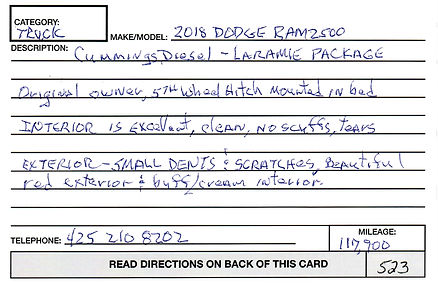 CATEGORY:
TRUCK
MAKE/MODEL: 2018 DODGE RAM 2500
DESCRIPTION: Cummings Diesel - LARAMIE PACKAGE
Original owner, 5TH Wheel Hitch Mounted in bed
INTERIOR is Excellent, clean, NO scuffs, tears
EXTERIOR - SMALL DENTS & SCRATCHES, Beautiful
red exterior & buff/cream interior
TELEPHONE: 425 210 8202
MILEAGE:
117,900
READ DIRECTIONS ON BACK OF THIS CARD
523